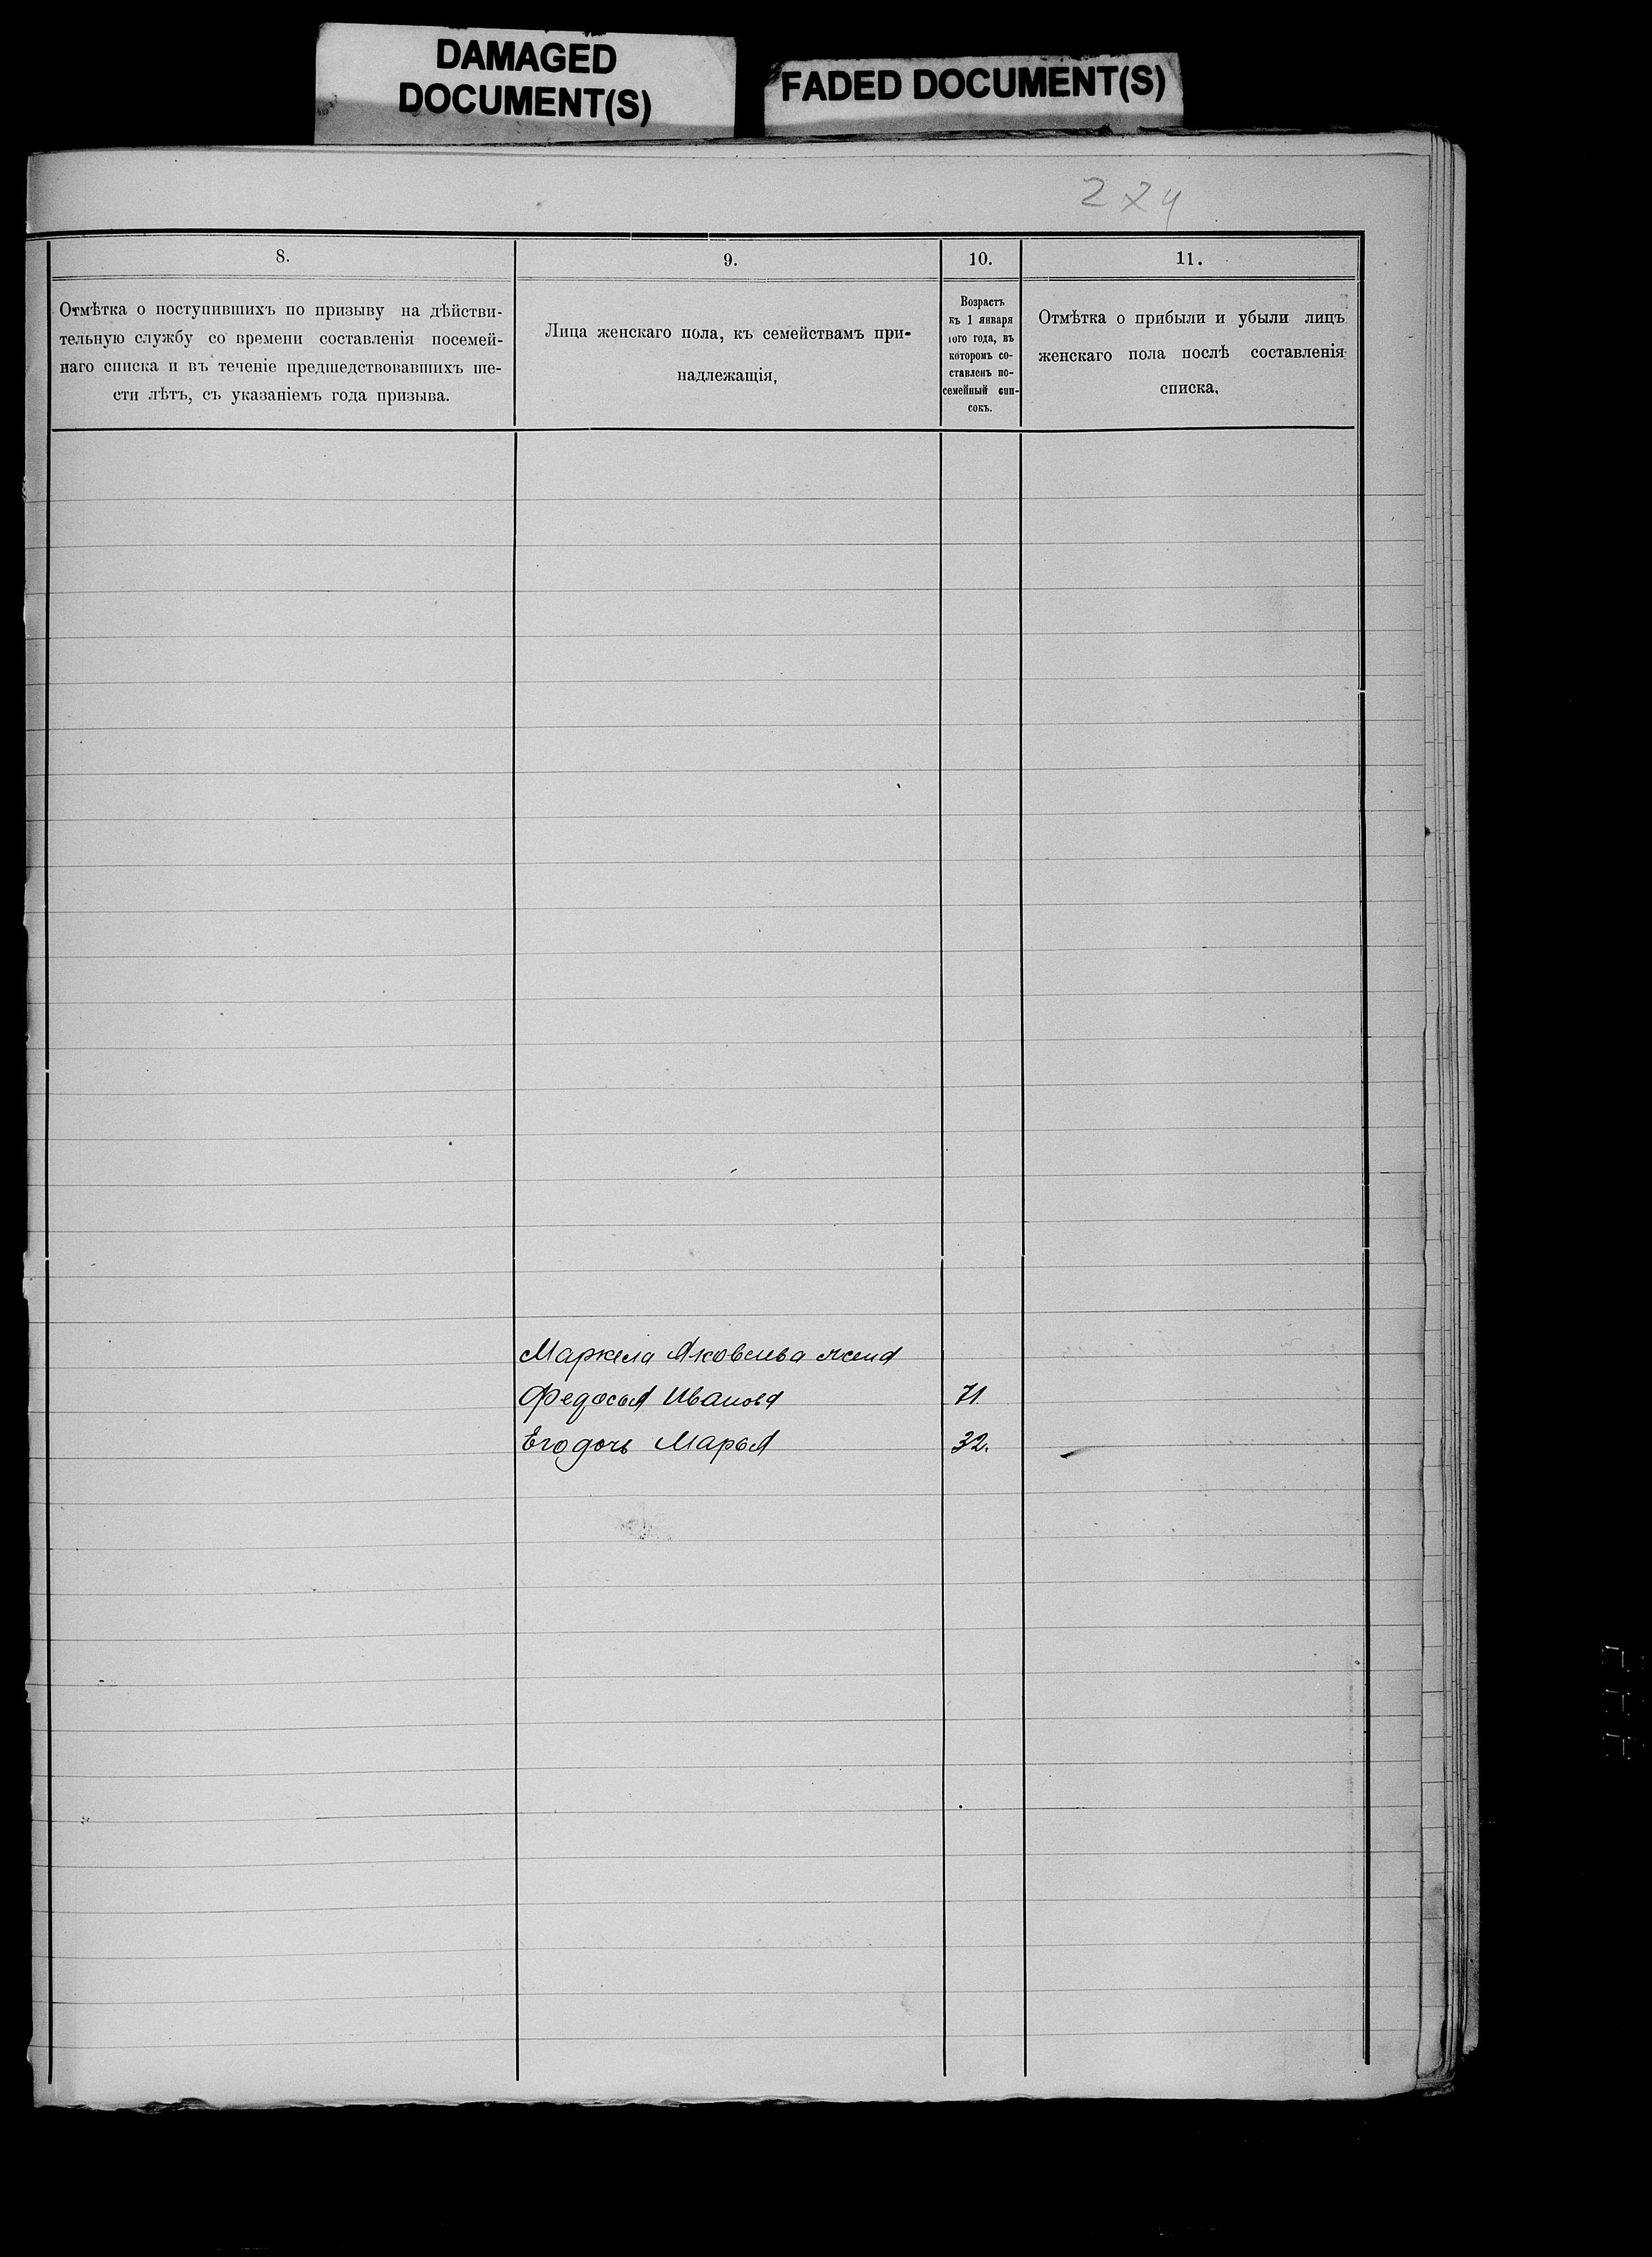 DAMAGED
DOCUMENT(S)
FADED DOCUMENT(S)
274
8.
9.
10.
11.
Отмѣтка о поступившихъ по призыву на дѣйстви-
тельную службу со времени составленія посемей-
наго списка и въ теченіе предшедствовавшихъ ше-
сти лѣтъ, съ указаніемъ года призыва.
Лица женскаго пола, къ семействамъ при-
надлежащія,
Возрастъ
къ 1 января
того года, въ
которомъ со-
ставленъ по-
семейный спи-
сокъ.
Отмѣтка о прибыли и убыли лицъ
женскаго пола послѣ составленія
списка.
Маркела Яковлева жена
Федосья Иванова 71.
Его дочь Марья 32.